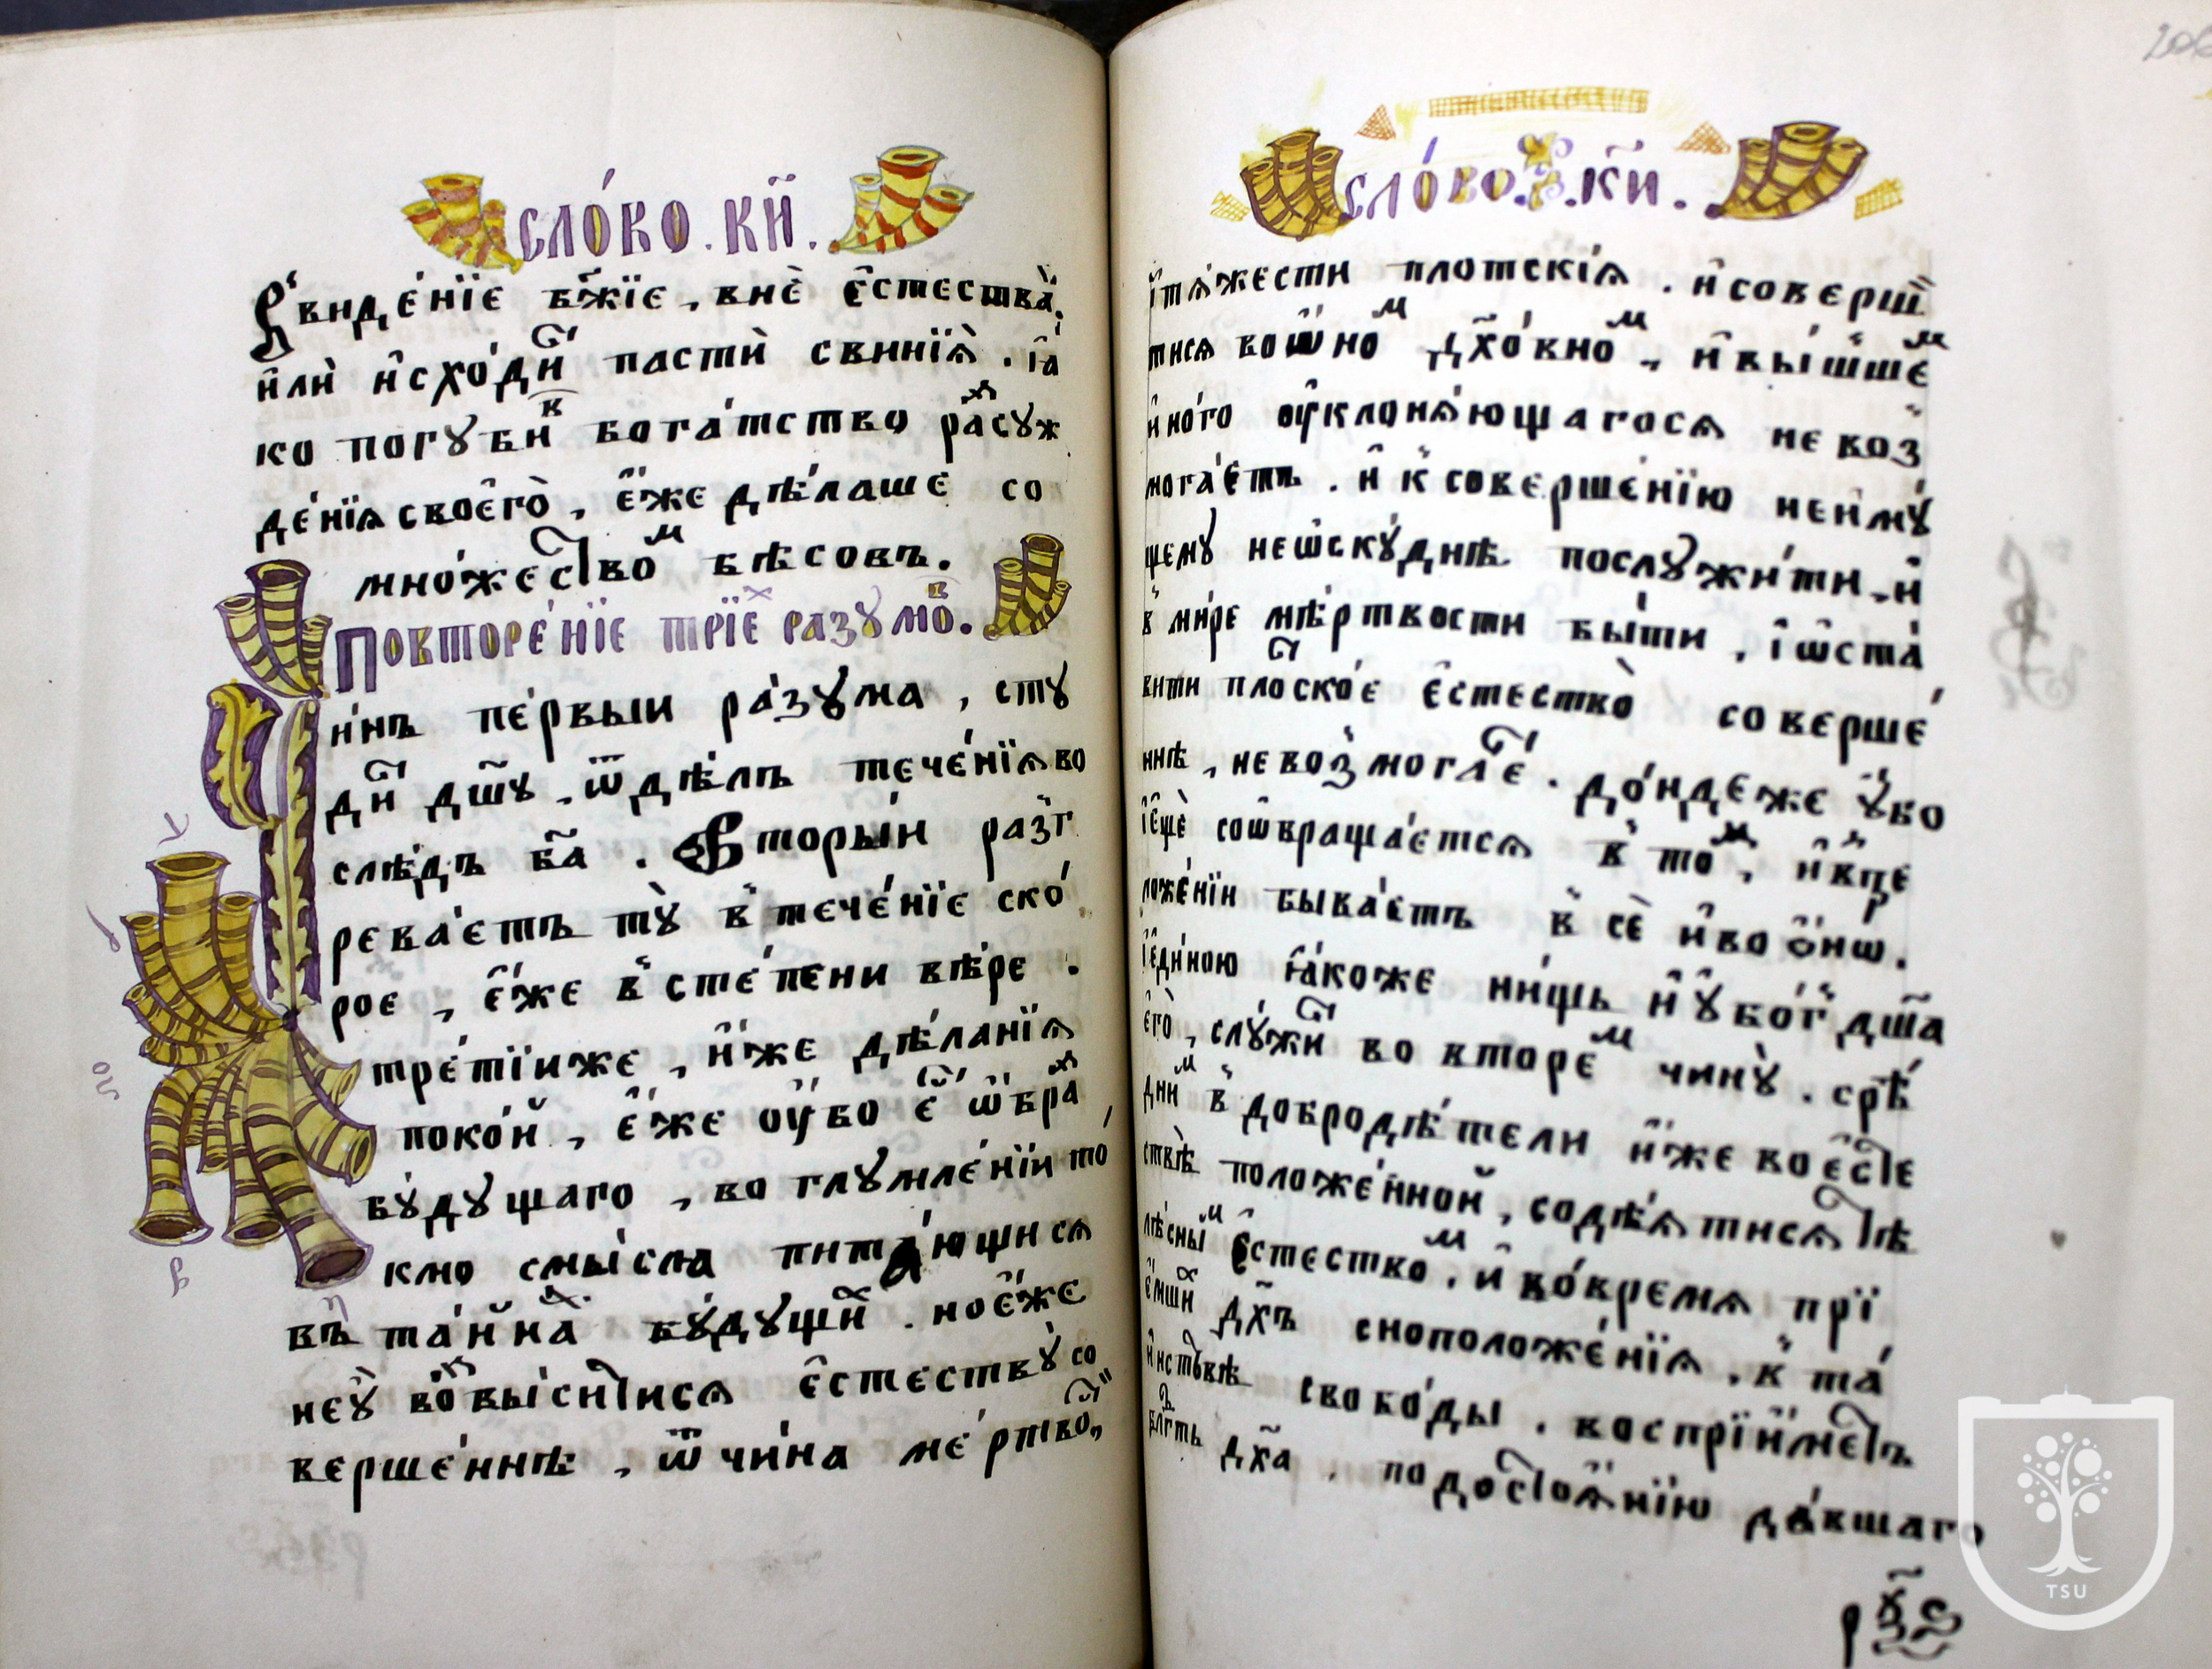 сло́во . к҃и .
в̾видѣ́нїе бж҃їе , внѐ є҆стества̀ .
и҆лѝ и҆схо́диⷮ пастѝ свинїѧ̀ . ꙗ҆
ко погꙋбиⷡ бога́тство раⷥсꙋж
де́нїѧ своегѡ̀ , є҆́же дѣ́лаше со
мно́жествоⷨ бѣсовъ .
Повторе́нїе трїеⷯ разꙋмоⷡ .
и́нъ пе́рвыи ра́зꙋма , стꙋ
диⷮ дш҃ꙋ , ѿ дѣ́лъ тече́нїѧ во
слѣ́дъ бг҃а . Вторы́и разг
рева́етъ тꙋ̀ в̾ тече́нїе ско́
рое , є҆́же в̾ сте́пени вѣ́ре .
тре́тїиже , и҆́же дѣ́ланїѧ
поко́й , є҆́же ᲂу҆́бо є҆́ⷭ ѿбраⷥ
бꙋ́дꙋщаго , во глꙋмле́нїи то́
кмо смы́сла пита́ющисѧ
въ та́йнаⷯ бꙋ́дꙋщиⷯ . но є҆́же
не ᲂу҆̀ воⷥвы́ситисѧ є҆стествꙋ̀ со
верше́ннѣ , ѿ чи́на ме́ртвоⷭ
сло́во . к҃и .
и҆ тѧ́жести плотскі́ѧ . и҆ соверши́
тисѧ во ѿноⷨ дх҃о́вноⷨ , и҆ вы́шшеⷨ
и҆но́го ᲂу҆клонѧ́ющагосѧ не воз
мога́етъ . и҆ к̾ соверше́нїю неимꙋ́
щемꙋ неѡ҆скꙋ́днѣ послꙋжи́ти , и҆
в̾ ми́ре мѣ́ртвости бы́ти , і҆ ѡ҆ста́
вити плоⷮско́е є҆стество̀ соверше́
ннѣ , не возмога́еⷮ . до́ндеже ᲂу҆́бо
і҆ є҆щѐ соѿвраща́етсѧ в̾ тоⷨ , и҆ в̾ пре
ложе́нїи быва́етъ в̾ сѐ и҆ во ѻ҆́нѡ .
і҆ є҆ди́ною ꙗ҆́коже ни́щь и҆ ᲂу҆бо́г̾ дш҃а
є҆гѡ̀ , слꙋ́житⷮ во второⷨ чинꙋ̀ . срѣ́
дниⷨ в̾ добродѣ́тели и҆́же во є҆сте
ствѣ̀ положе́нной , содѣ́ѧтисѧ тѣ
лѣ́сныⷨ є҆стествоⷨ , и҆ во́времѧ прї
є҆́мшиⷯ дх҃ъ сноположе́нїѧ , к̾ та́
инствѣ свобо́ды , воспрїи́метъ
блгⷣть дх҃а , по достоѧ́нїю да́вшаго